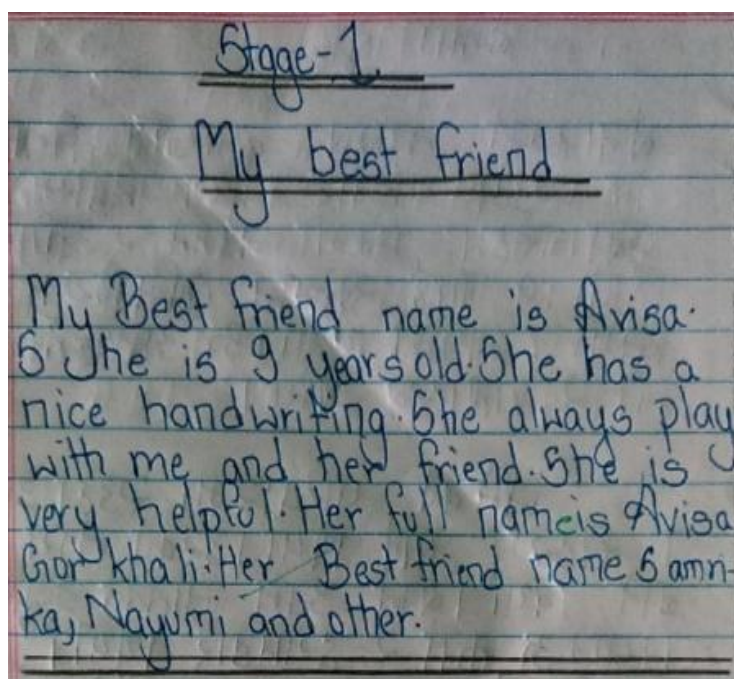 Stage-1
My best friend
My Best friend name is Avisa.
S she is 9 years old. She has a
nice handwriting. She always play
with me and her friend. She is
very helpful. Her full name is Avisa
Gorkhali. Her Best friend name Samri-
ka, Nayumi and other.